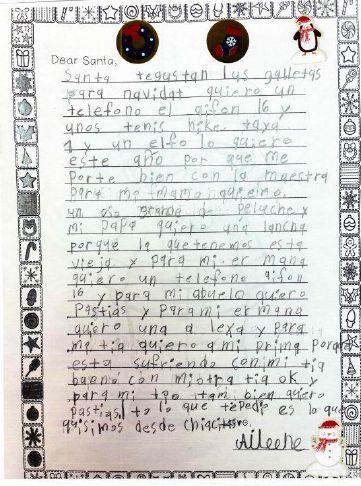 Dear Santa,
Santa tegustan las galletas
para navidat quiero un
telefono el aifon 16 y
unos tenis nike taya
1 y un elfo lo quiero
este año por que me
porte bien con la muestra
para mi mama quiero
un oso grande de peluche y
mi papa quiero una lancha
porque la quetenemos esta
vieja y para mi er mana
quiero un telefono aifon
16 y para mi abuelo quiero
Pastias y Para mi ermana
quiero una a lexa y Para
mi tia quiero a mi prima porque
esta sufriendo con mi tia
bueno con mi otra tia ok y
para mi tio tam bien quiero
pastias to lo que tepedi es lo que
quisimos desde
Aileene